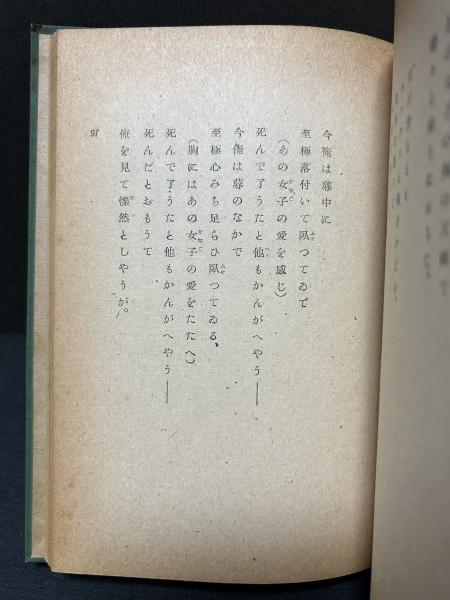 今俺は墓中に
至極落付いて臥つてゐで
(あの女子の愛を感じ)
死んで了うたと他もかんがへやう——
今俺は墓のなかで
至極心みち足らひ臥つてゐる、
(胸にはあの女子の愛をたたへ)
死んで了うたと他もかんがへやう——
死んだとおもうて
俺を見て慄然としやうが。
97